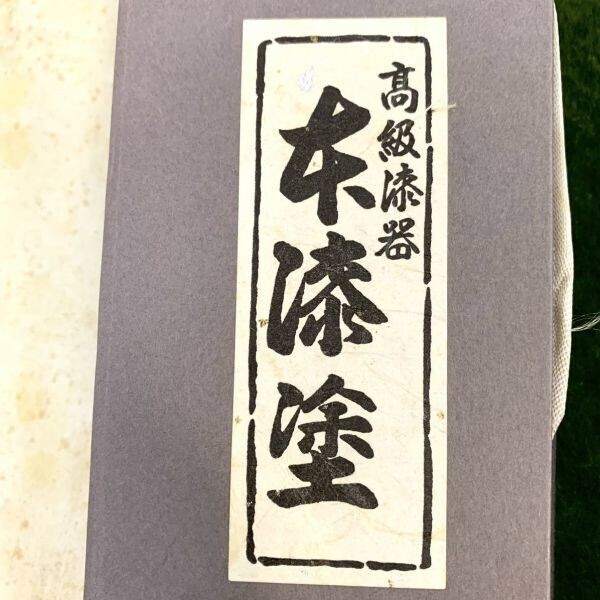 髙級漆器
本漆塗